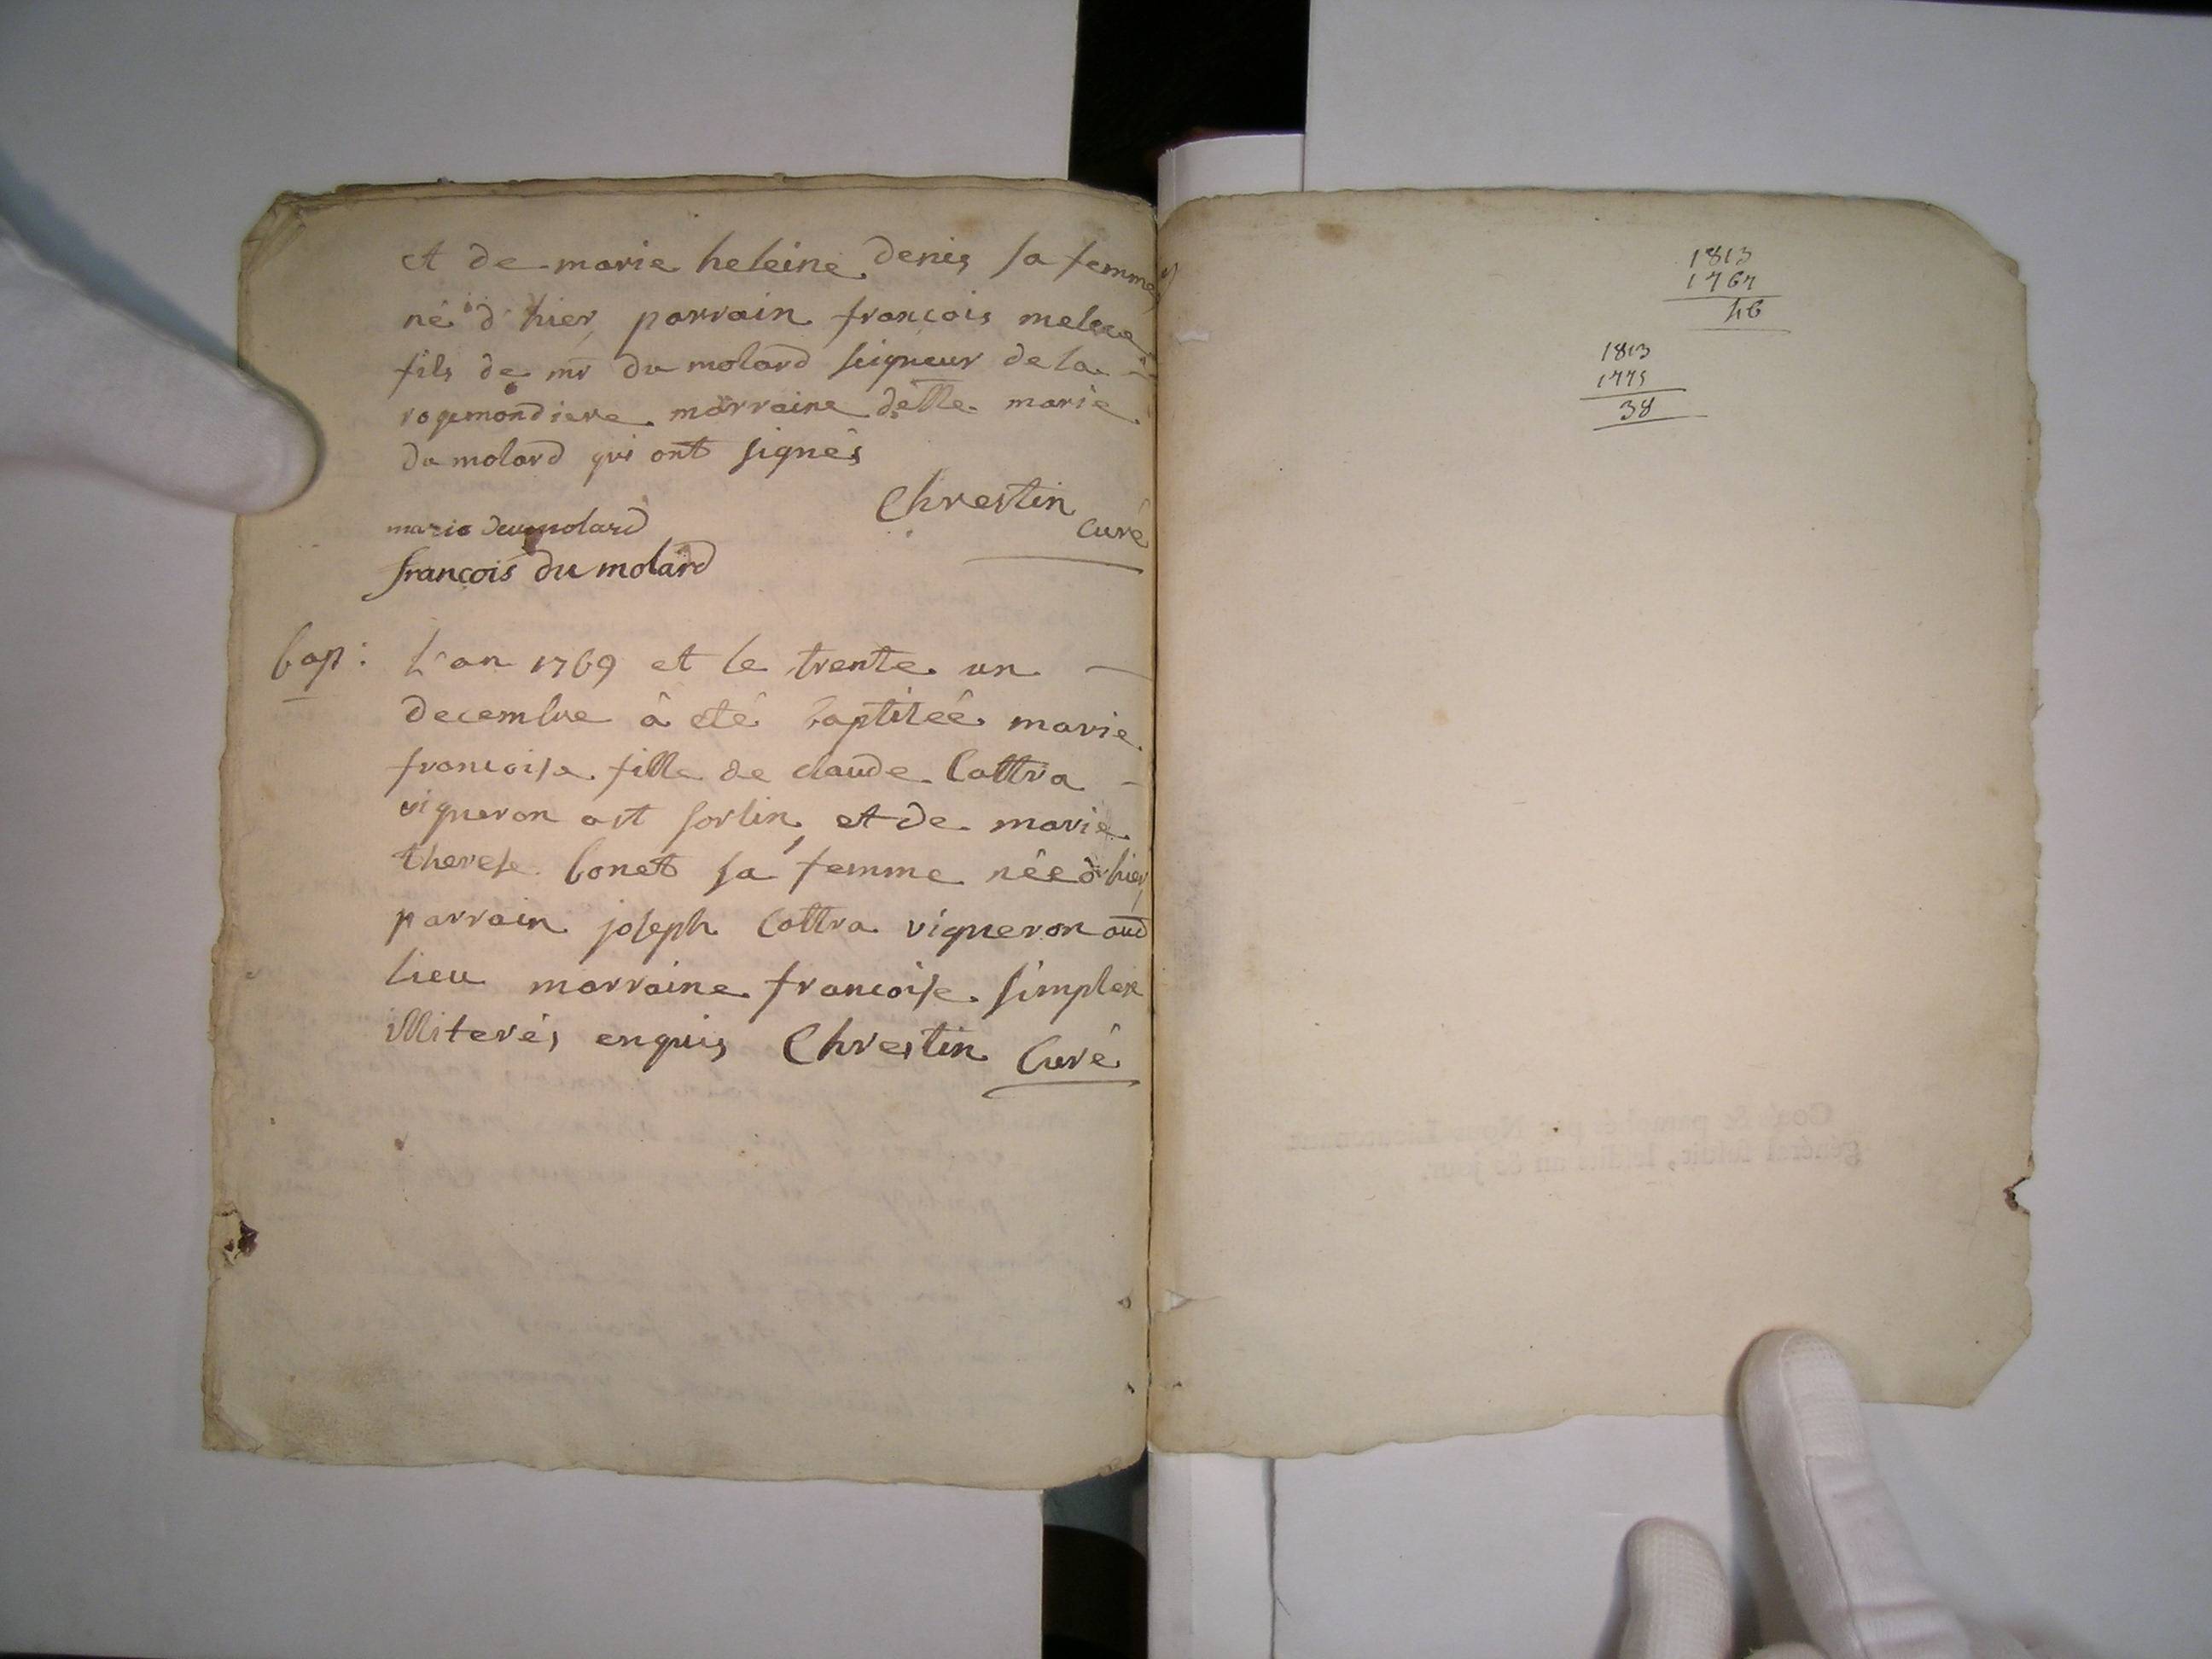 et de marie heleine denis sa femme
né d'hier, parrain françois
fils de mr du molard seigneur de la
marraine delle marie
du molard qui ont signés
Chrestin
curé
marie dumolard
françois du molard
bap: L'an 1769 et le trente un
decembre â eté baptiseé marie
francoise fille de claude Cottra
vigneron ast sorlin, et de marie
therese bonet sa femme née d'hier,
parrain joseph Cottra vigneron aud
lieu marraine francoise simplex
illiterés enquis Chrestin Curé
1813
1767
46
1813
1775
38
Coté & paraphé par Nous Lieutenant
général susdit, lesdits an & jour.